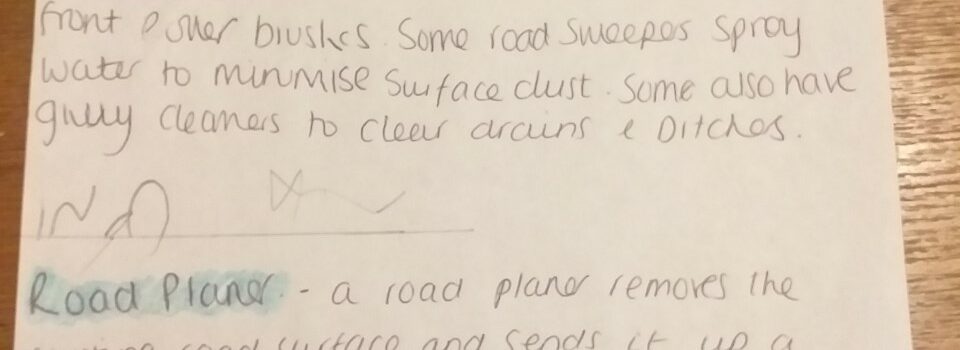 front pusher brushes. Some road sweepers spray
water to minimise surface dust. Some also have
gully cleaners to clear drains & Ditches.
Road Planer - a road planer removes the
road surface and sends it up a